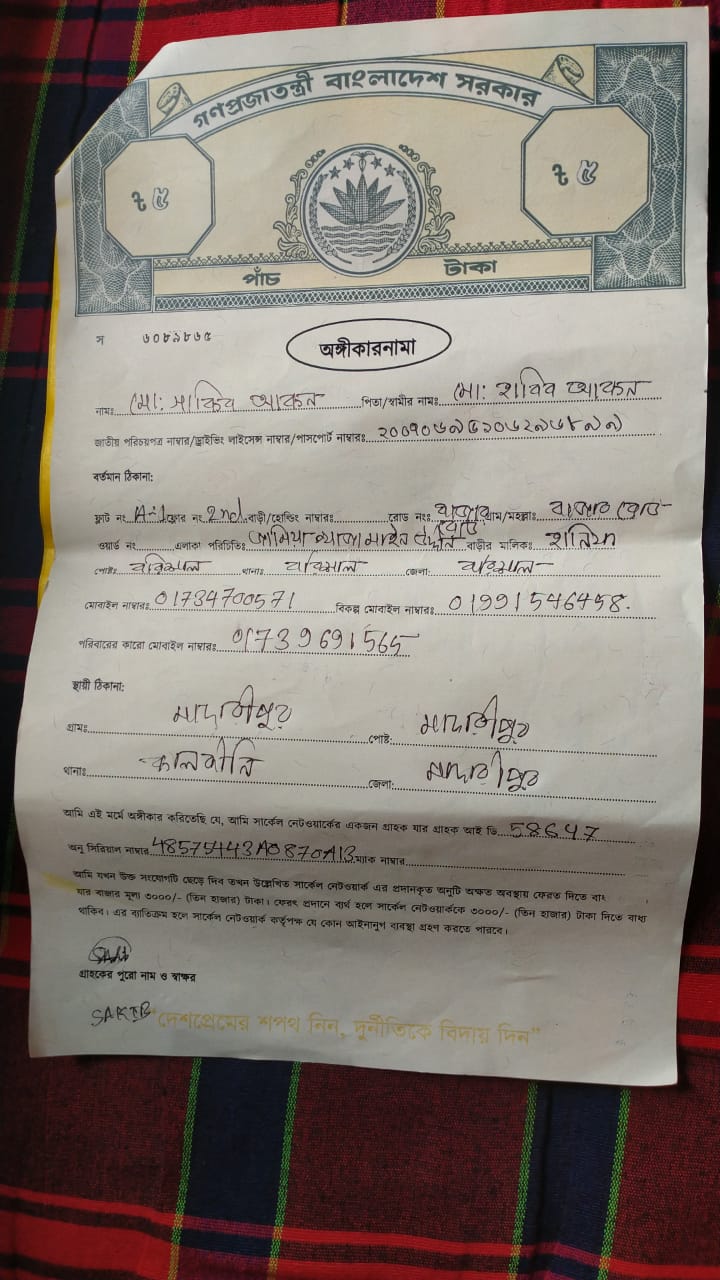 গণপ্রজাতন্ত্রী বাংলাদেশ সরকার
৳ ৫
৳ ৫
পাঁচ টাকা
স ৬০৮৯৮৬৫
অঙ্গীকারনামা
নামঃ মো: সাকিব আকন পিতা/স্বামীর নামঃ মো: হাবিব আকন
জাতীয় পরিচয়পত্র নাম্বার/ড্রাইভিং লাইসেন্স নাম্বার/পাসপোর্ট নাম্বারঃ
বর্তমান ঠিকানা:
ফ্লাট নং A-1 ফ্লোর নং 2nd বাড়ী/হোল্ডিং নাম্বারঃ রোড নংঃ গ্রাম/মহল্লাঃ
ওয়ার্ড নং এলাকা পরিচিতিঃ বাড়ীর মালিকঃ হানিফ
পোষ্টঃ বরিশাল থানাঃ বরিশাল জেলা: বরিশাল
মোবাইল নাম্বারঃ 01734700571 বিকল্প মোবাইল নাম্বারঃ 01991546458.
পরিবারের কারো মোবাইল নাম্বারঃ 01739691565
স্থায়ী ঠিকানা:
গ্রামঃ মাদারীপুর পোষ্ট: মাদারীপুর
থানাঃ কালকীনি জেলা: মাদারীপুর
আমি এই মর্মে অঙ্গীকার করিতেছি যে, আমি সার্কেল নেটওয়ার্কের একজন গ্রাহক যার গ্রাহক আই ডি 58647
অনু সিরিয়াল নাম্বার 48575443A0870A13 ম্যাক নাম্বার
আমি যখন উক্ত সংযোগটি ছেড়ে দিব তখন উল্লেখিত সার্কেল নেটওয়ার্ক এর প্রদানকৃত অনুটি অক্ষত অবস্থায় ফেরত দিতে বাধ্য
যার বাজার মূল্য ৩০০০/- (তিন হাজার) টাকা। ফেরৎ প্রদানে ব্যর্থ হলে সার্কেল নেটওয়ার্ককে ৩০০০/- (তিন হাজার) টাকা দিতে বাধ্য
থাকিব। এর ব্যতিক্রম হলে সার্কেল নেটওয়ার্ক কর্তৃপক্ষ যে কোন আইনানুগ ব্যবস্থা গ্রহণ করতে পারবে।
গ্রাহকের পুরো নাম ও স্বাক্ষর
SAKIB
"দেশপ্রেমের শপথ নিন, দুর্নীতিকে বিদায় দিন"